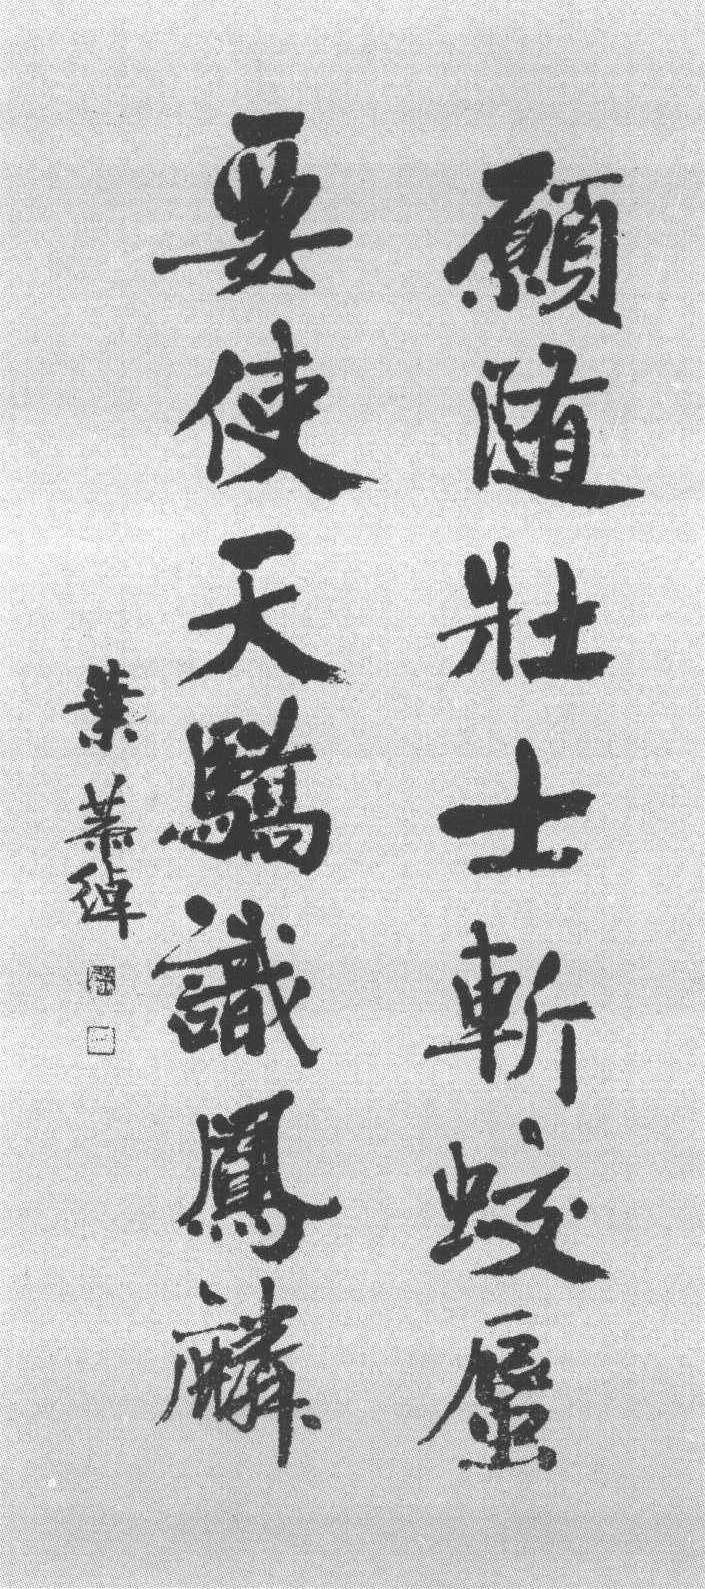 願随壯士斬蛟蜃
要使天驕識鳳麟
葉恭綽